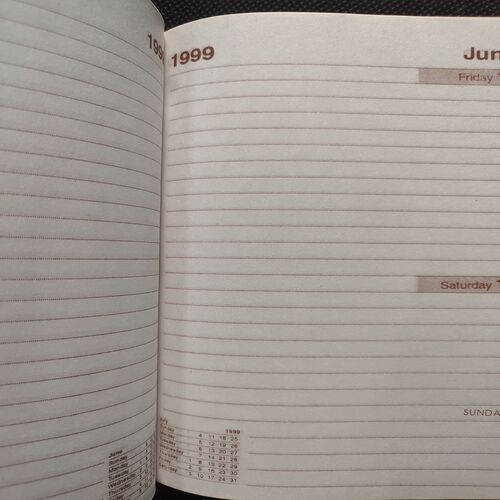 199
1999
Jun
Friday 1
Saturday 1
SUNDA
June
1999
4 11 18 25
5 12 19 26
6 13 20 27
7 14 21 28
1 8 15 22 29
2 9 16 23 30
3 10 17 24 31